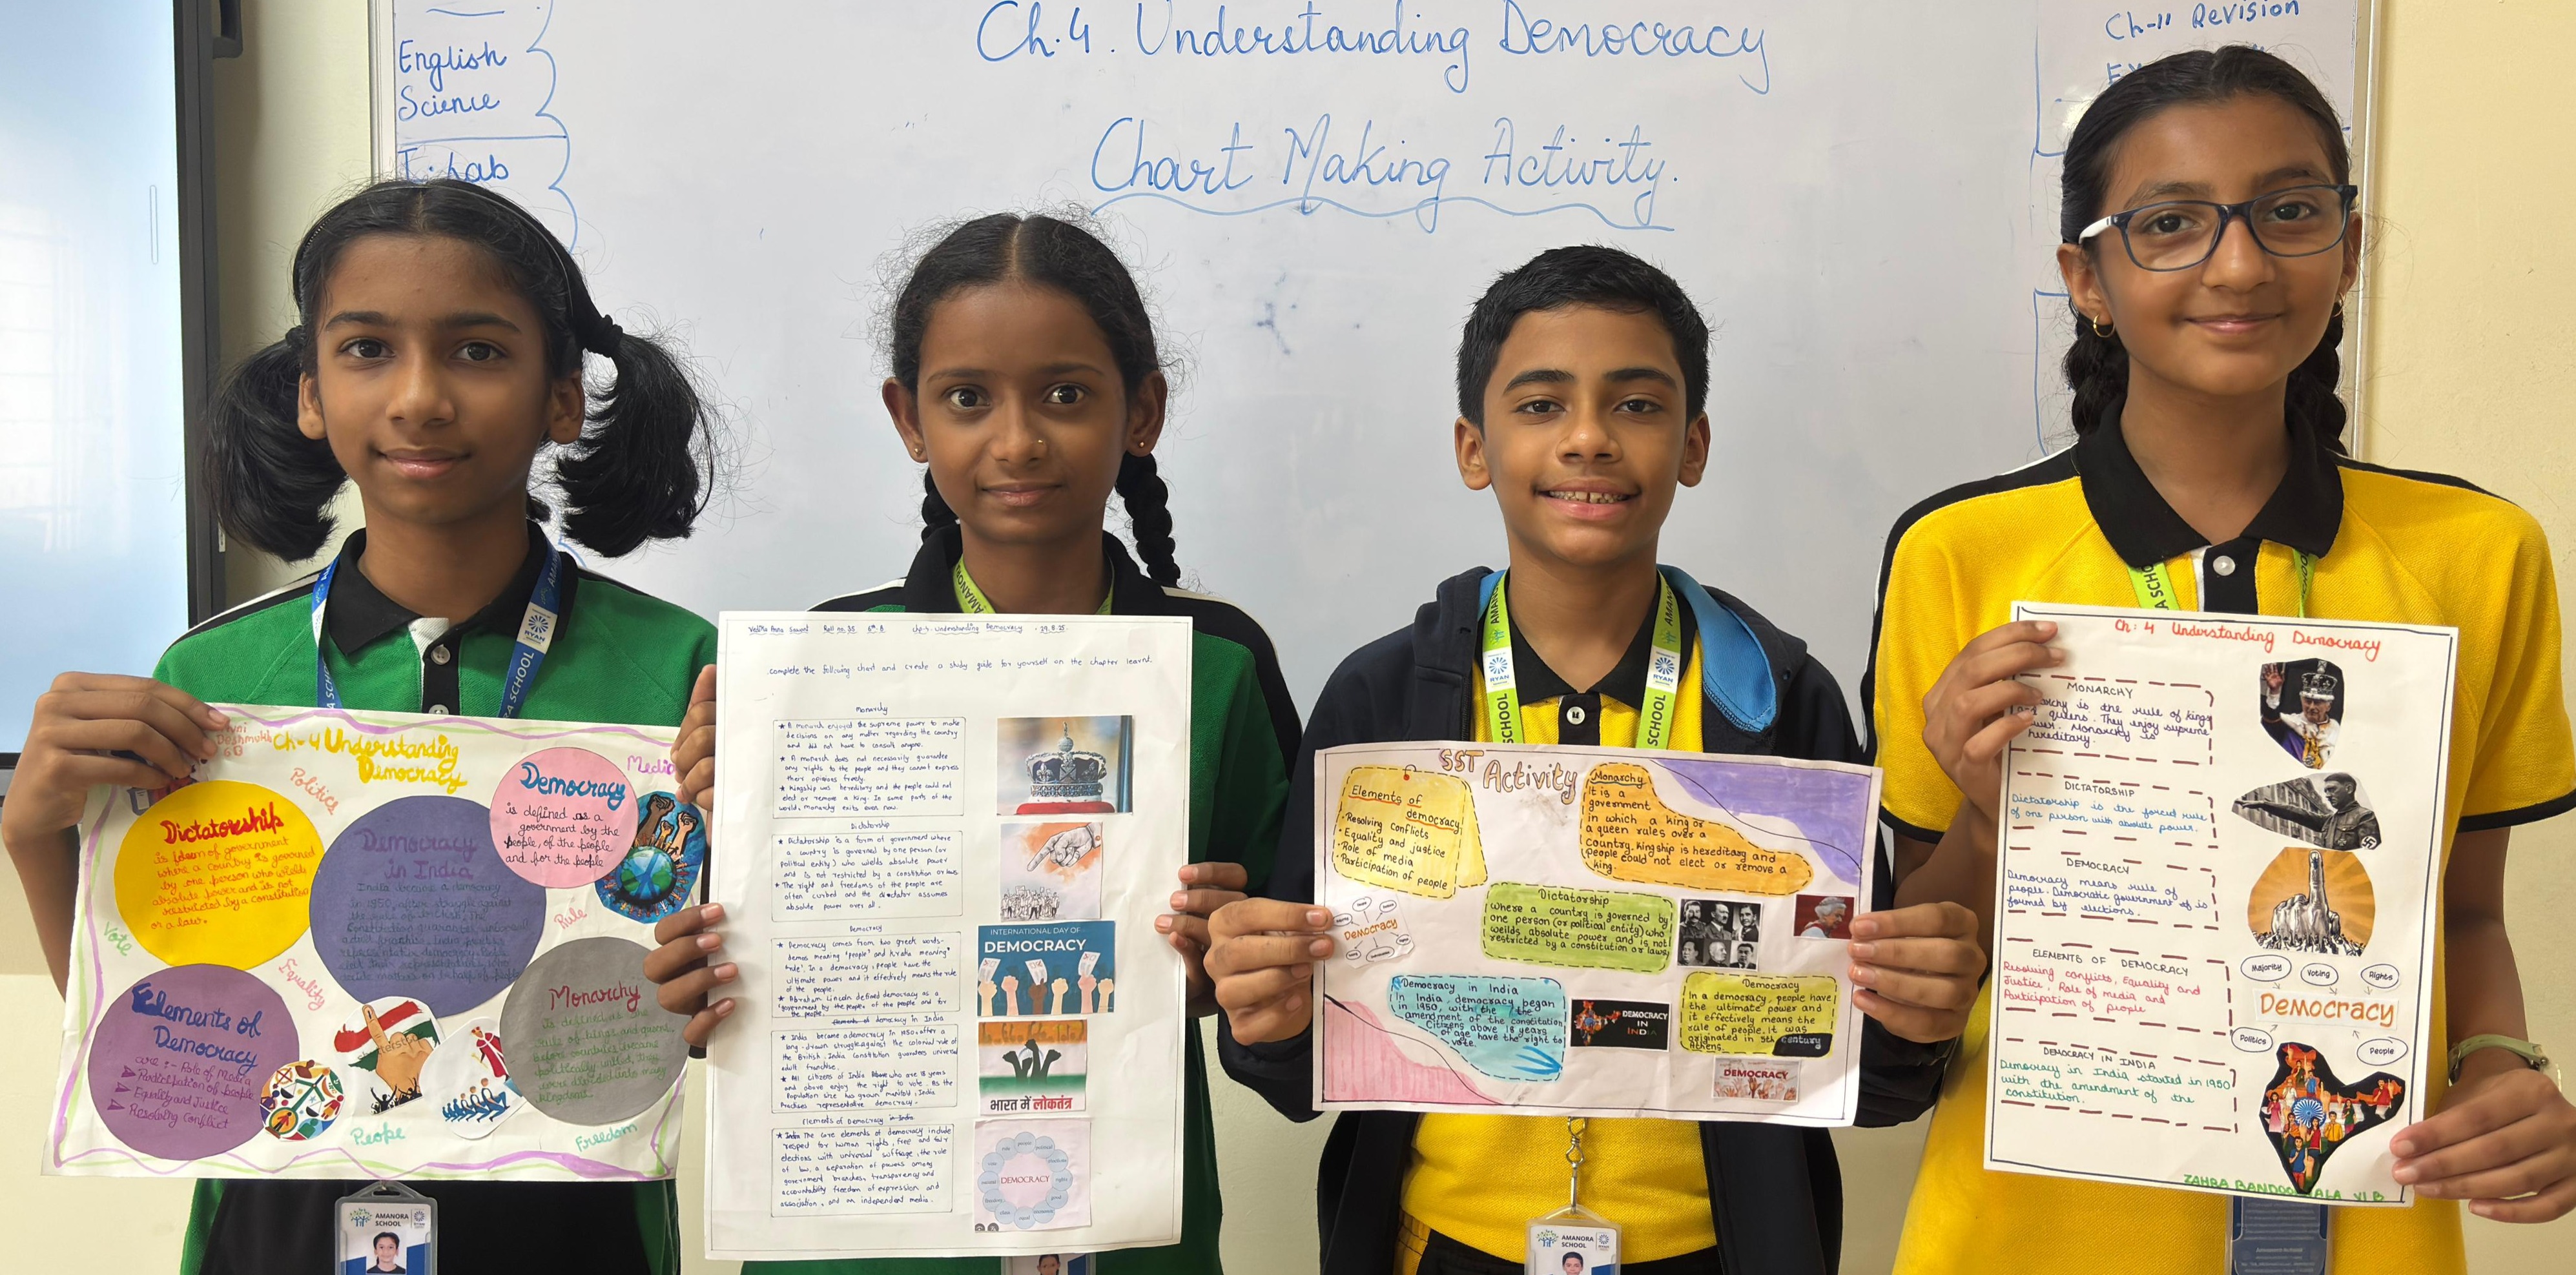 Ch.4. Understanding Democracy
Chart Making Activity.
English
Science
Lab
Ch-11 Revision
AMANORA
SCHOOL
RYAN
Deshmukh
Ch-4 Understanding
Democracy
Politics
Media
Dictatorship
is
of government
where a country is governed
by one person who wields
absolute power and is not
restricted by a constitution
or a law.
Democracy
in India
India became a democracy
in 1950, after struggle against
Democracy
is defined as a
government by the
people, of the people
and for the people
Vote
Equality
Rule
Elements of
Democracy
are :- Role of Media
Participation of people
Equality and Justice
Resolving Conflict
Monarchy
is defined as the
rule of kings and queens
Freedom
Roll no. 35 6th B Chp-4. Understanding Democracy - 29.8.25
Complete the following chart and create a study guide for yourself on the chapter learnt.
Monarchy
★ A monarch enjoyed the supreme power to make
decisions on any matter regarding the country
and did not have to consult anyone.
★ A monarch does not necessarily guarantee
any rights to the people and they cannot express
their opinions freely.
★ Kingship was hereditary and the people could not
elect or remove a king. In some parts of the
world, monarchy exits even now.
Dictatorship
★ Dictatorship is a form of government where
a country is governed by one person (or
political entity) who wields absolute power
and is not restricted by a constitution or laws
★ The right and freedoms of the people are
often curbed and the dictator assumes
absolute power over all.
Democracy
★ Democracy comes from two greek words-
demos meaning 'people' and kratia meaning
'rule'. In a democracy, people have the
ultimate power and it effectively means the rule
of the people.
★ Abraham Lincoln defined democracy as a
'government by the people, of the people and for
the people.
INTERNATIONAL DAY OF
DEMOCRACY
democracy in India
★ India became a democracy in 1950, after a
long-drawn struggle against the colonial rule of
the British. India Constitution guarantees universal
adult franchise.
★ All citizens of India who are 18 years
and above enjoy the right to vote. As the
Population size has grown manifold, India
Practises representative democracy.
भारत में लोकतंत्र
Elements of Democracy in India
★ The core elements of democracy include
respect for human rights, free and fair
elections with universal suffrage, the rule
of law, a separation of powers among
government branches, transparency and
accountability freedom of expression and
association, and an independent media.
DEMOCRACY
SST Activity
Elements of
democracy
• Resolving conflicts
• Equality and justice
• Role of media
• Participation of people
Monarchy
It is a
government
in which a king or
a queen rules over a
country. Kingship is hereditary and
people could not elect or remove a
king.
Dictatorship
Where a country is governed by
one person (or political entity) who
weilds absolute power and is not
restricted by a constitution or laws
DEMOCRACY
Democracy in India
In India, democracy began
in 1950, with the 7the
amendment of the constitution
Citizens above 18 years
of age have the right to
vote.
DEMOCRACY
IN
INDIA
Democracy
In a democracy, people have
the ultimate power and
it effectively means the
rule of people. It was
originated in 5th century
Athens.
DEMOCRACY
Ch: 4 Understanding Democracy
MONARCHY
is the rule of kings
and queens. They enjoy supreme
Monarchy is
hereditary.
DICTATORSHIP
Dictatorship is the forced rule
of one person with absolute power.
DEMOCRACY
Democracy means rule of
people. Democratic government is
formed by elections.
ELEMENTS OF DEMOCRACY
Resolving conflicts, Equality and
Justice, Role of media and
Participation of people
Majority
Voting
Rights
Democracy
Politics
People
DEMOCRACY IN INDIA
Democracy in India started in 1950
with the amendment of the
constitution.
ZAHRA
VI B
AMANORA
SCHOOL
AMANORA
SCHOOL